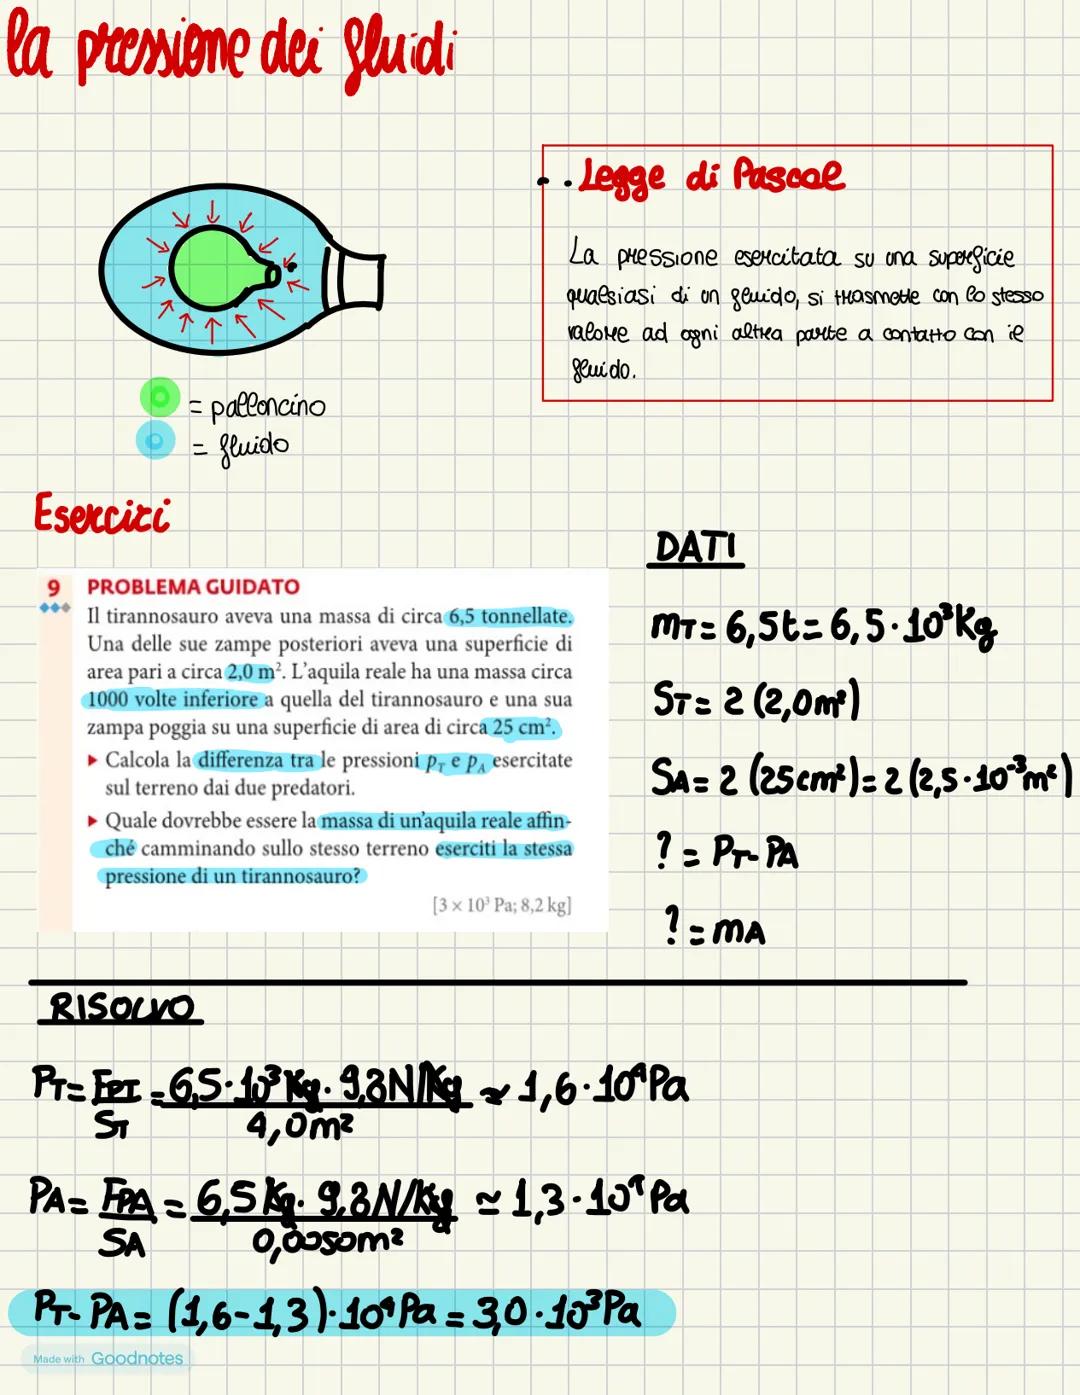 la pressione dei fluidi
Legge di Pascal
La pressione esercitata su una superficie
qualsiasi di un fluido, si trasmette con lo stesso
valore ad ogni altra parte a contatto con il
fluido.
= palloncino
= fluido
Esercizi
DATI
9 PROBLEMA GUIDATO
Il tirannosauro aveva una massa di circa 6,5 tonnellate.
Una delle sue zampe posteriori aveva una superficie di
area pari a circa 2,0 m². L'aquila reale ha una massa circa
1000 volte inferiore a quella del tirannosauro e una sua
zampa poggia su una superficie di area di circa 25 cm².
▸ Calcola la differenza tra le pressioni p_T e p_A esercitate
sul terreno dai due predatori.
▸ Quale dovrebbe essere la massa di un'aquila reale affin-
ché camminando sullo stesso terreno eserciti la stessa
pressione di un tirannosauro?
[3 × 10³ Pa; 8,2 kg]
mT = 6,5t = 6,5·10³Kg
ST = 2 (2,0m²)
SA = 2 (25cm²) = 2 (2,5·10⁻³m²)
? = PT-PA
? = mA
RISOLVO
PT = FPT/ST = 6,5·10³ Kg · 9,8N/Kg / 4,0m² ≃ 1,6·10⁴Pa
PA = FPA/SA = 6,5 Kg · 9,8N/Kg / 0,0050m² ≃ 1,3·10⁴Pa
PT-PA = (1,6-1,3)·10⁴Pa = 3,0·10³Pa
Made with Goodnotes